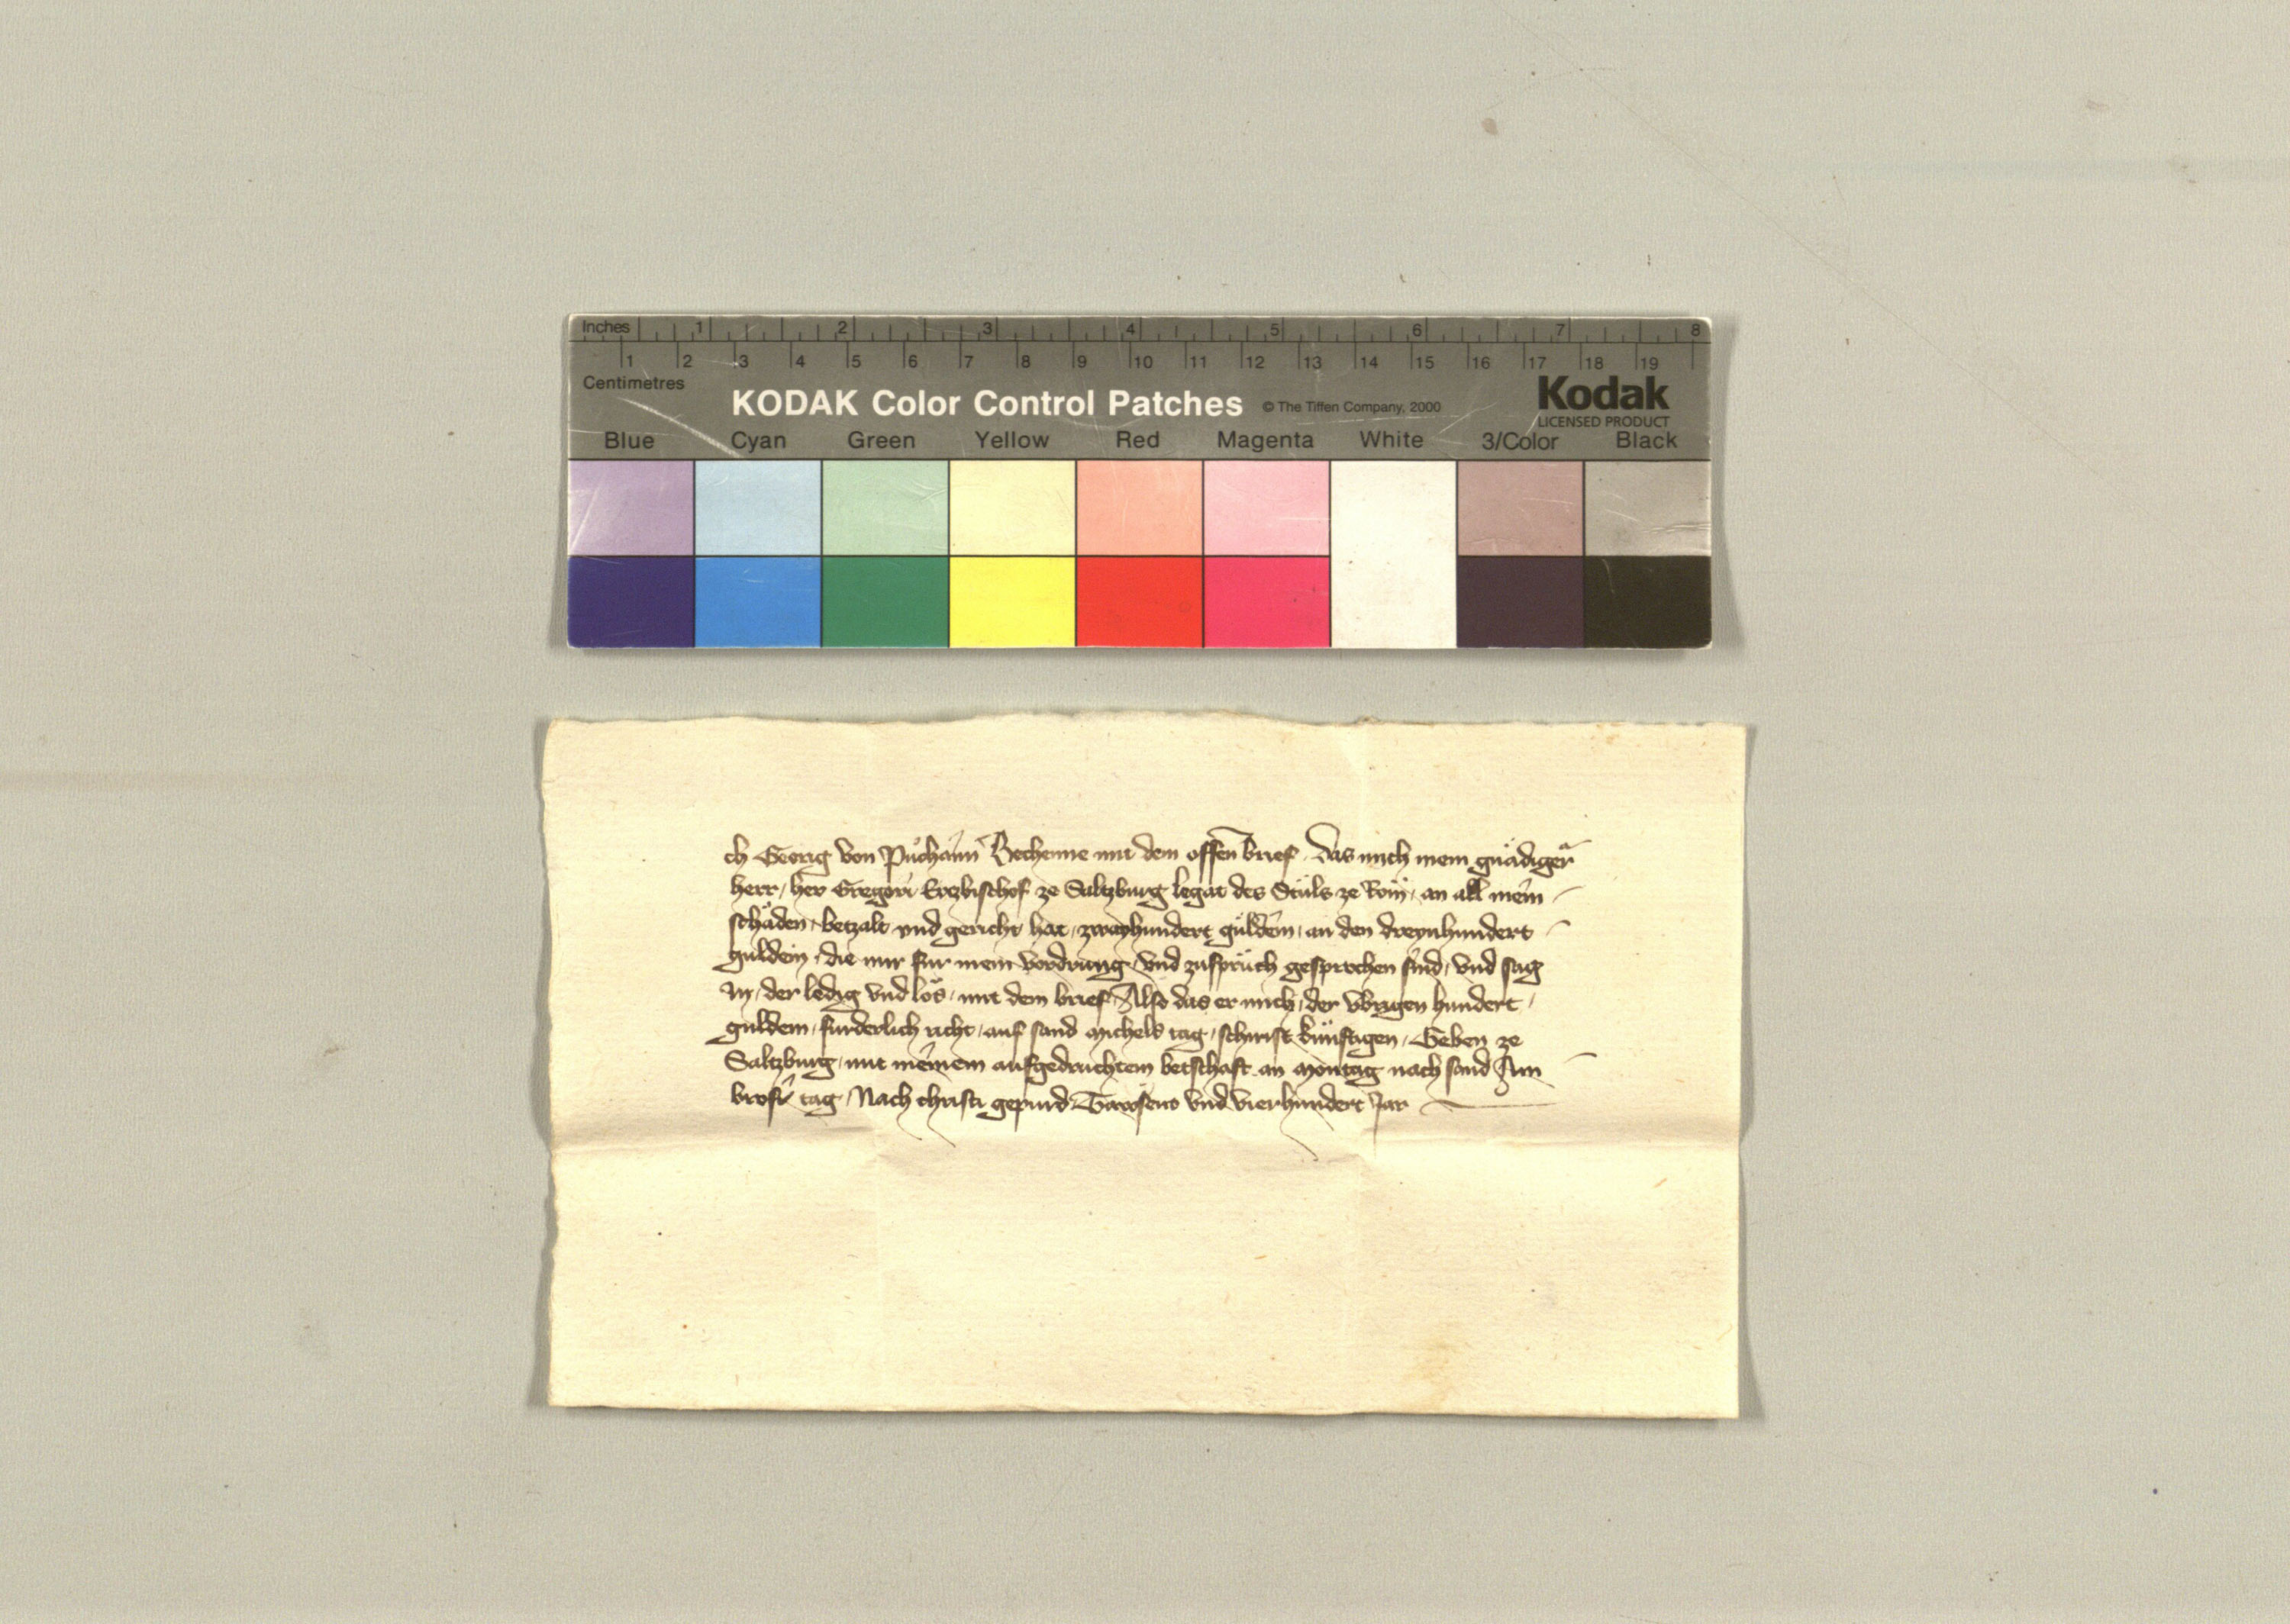 Inches 1 2 3 4 5 6 7 8
1 2 3 4 5 6 7 8 9 10 11 12 13 14 15 16 17 18 19
Centimetres
KODAK Color Control Patches © The Tiffen Company, 2000 Kodak
LICENSED PRODUCT
Blue Cyan Green Yellow Red Magenta White 3/Color Black
ch Georig von Půchaim Bechenne mit dem offen brief, das mich mein gnädiger
herr, her Gregori Erczbischof ze Saltzburg legat des Stůls ze Rom, an all mein
schäden, betzalt vnd gericht hat, zwayhundert guldein, an den dreynhundert
guldein, die mir fur mein vordrung, vnd zuspruch gesprochen sind, vnd sag
In, der ledig vnd los, mit dem brief, Also das er mich, der vbrigen hundert,
guldein, furderlich richt, auf sand Michels tag, schirist künftigen, Geben ze
Saltzburg, mit meinem aufgedruchtem betschaft an Montag nach sand Am
brosy tag, Nach christi gepurd Tawsent vnd vierhundert Jar